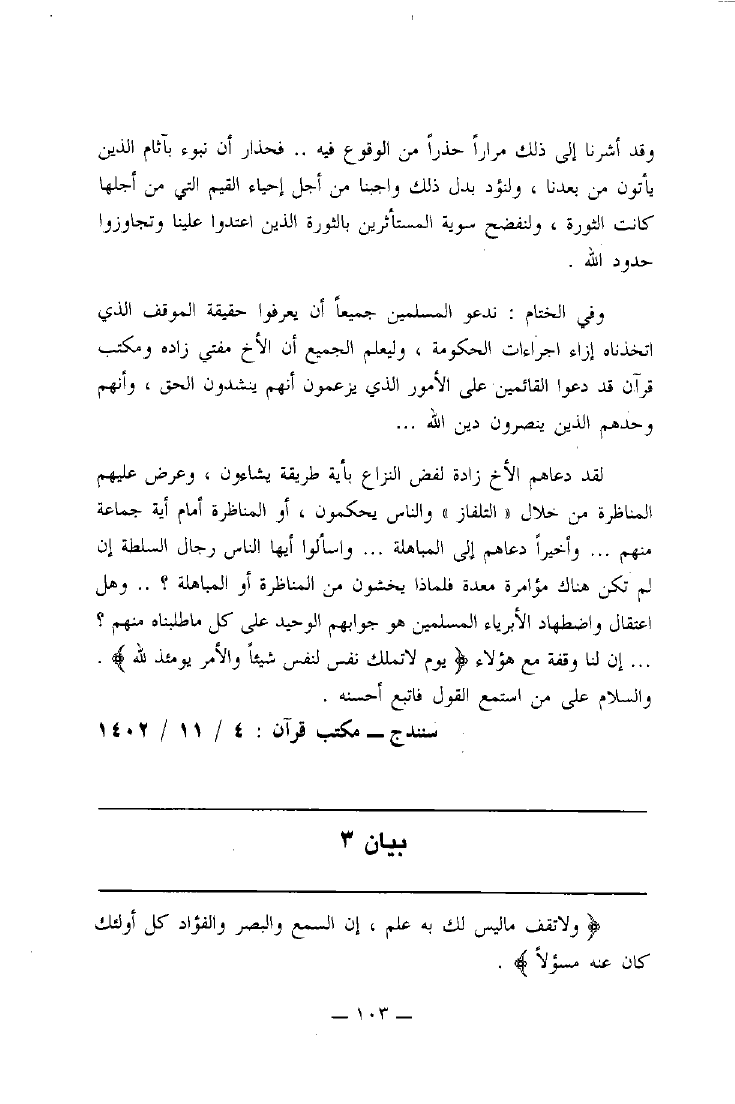 وقد أشرنا إلى ذلك مراراً حذراً من الوقوع فيه .. فحذار أن نبوء بآثام الذين
يأتون من بعدنا ، ولنؤد بدل ذلك واجبنا من أجل إحياء القيم التي من أجلها
كانت الثورة ، ولنفضح سوية المستأثرين بالثورة الذين اعتدوا علينا وتجاوزوا
حدود الله .
وفي الختام : ندعو المسلمين جميعاً أن يعرفوا حقيقة الموقف الذي
اتخذناه إزاء اجراءات الحكومة ، وليعلم الجميع أن الأخ مفتي زاده ومكتب
قرآن قد دعوا القائمين على الأمور الذي يزعمون أنهم ينشدون الحق ، وأنهم
وحدهم الذين ينصرون دين الله ...
لقد دعاهم الأخ زادة لفض النزاع بأية طريقة يشاءون ، وعرض عليهم
المناظرة من خلال « التلفاز » والناس يحكمون ، أو المناظرة أمام أية جماعة
منهم ... وأخيراً دعاهم إلى المباهلة ... واسألوا أيها الناس رجال السلطة إن
لم تكن هناك مؤامرة معدة فلماذا يخشون من المناظرة أو المباهلة ؟ .. وهل
اعتقال واضطهاد الأبرياء المسلمين هو جوابهم الوحيد على كل ماطلبناه منهم ؟
... إن لنا وقفة مع هؤلاء ﴿ يوم لاتملك نفس لنفس شيئاً والأمر يومئذ لله ﴾ .
والسلام على من استمع القول فاتبع أحسنه .
سنندج ــ مكتب قرآن : ٤ / ١١ / ١٤٠٢
بيان ٣
﴿ ولاتقف ماليس لك به علم ، إن السمع والبصر والفؤاد كل أولئك
كان عنه مسؤلاً ﴾ .
ــ ١٠٣ ــ